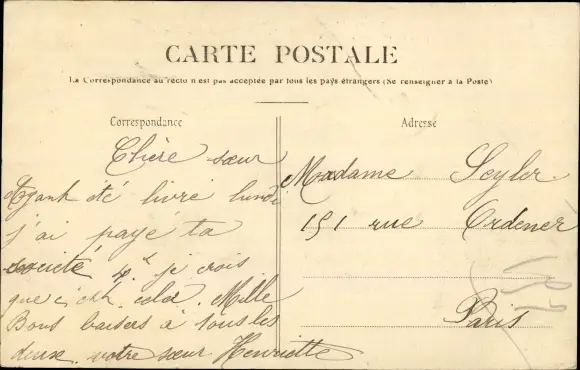 CARTE POSTALE
La Correspondance au recto n'est pas acceptée par tous les pays étrangers (Se renseigner à la Poste)
Correspondance
Adresse
Chère sœur
Ayant été livré lundi
j'ai payé ta
société 4 f je crois
que c'est cela. Mille
Bons baisers à tous les
deux votre sœur Henriette
Madame Seyler
151 rue Ordener
Paris